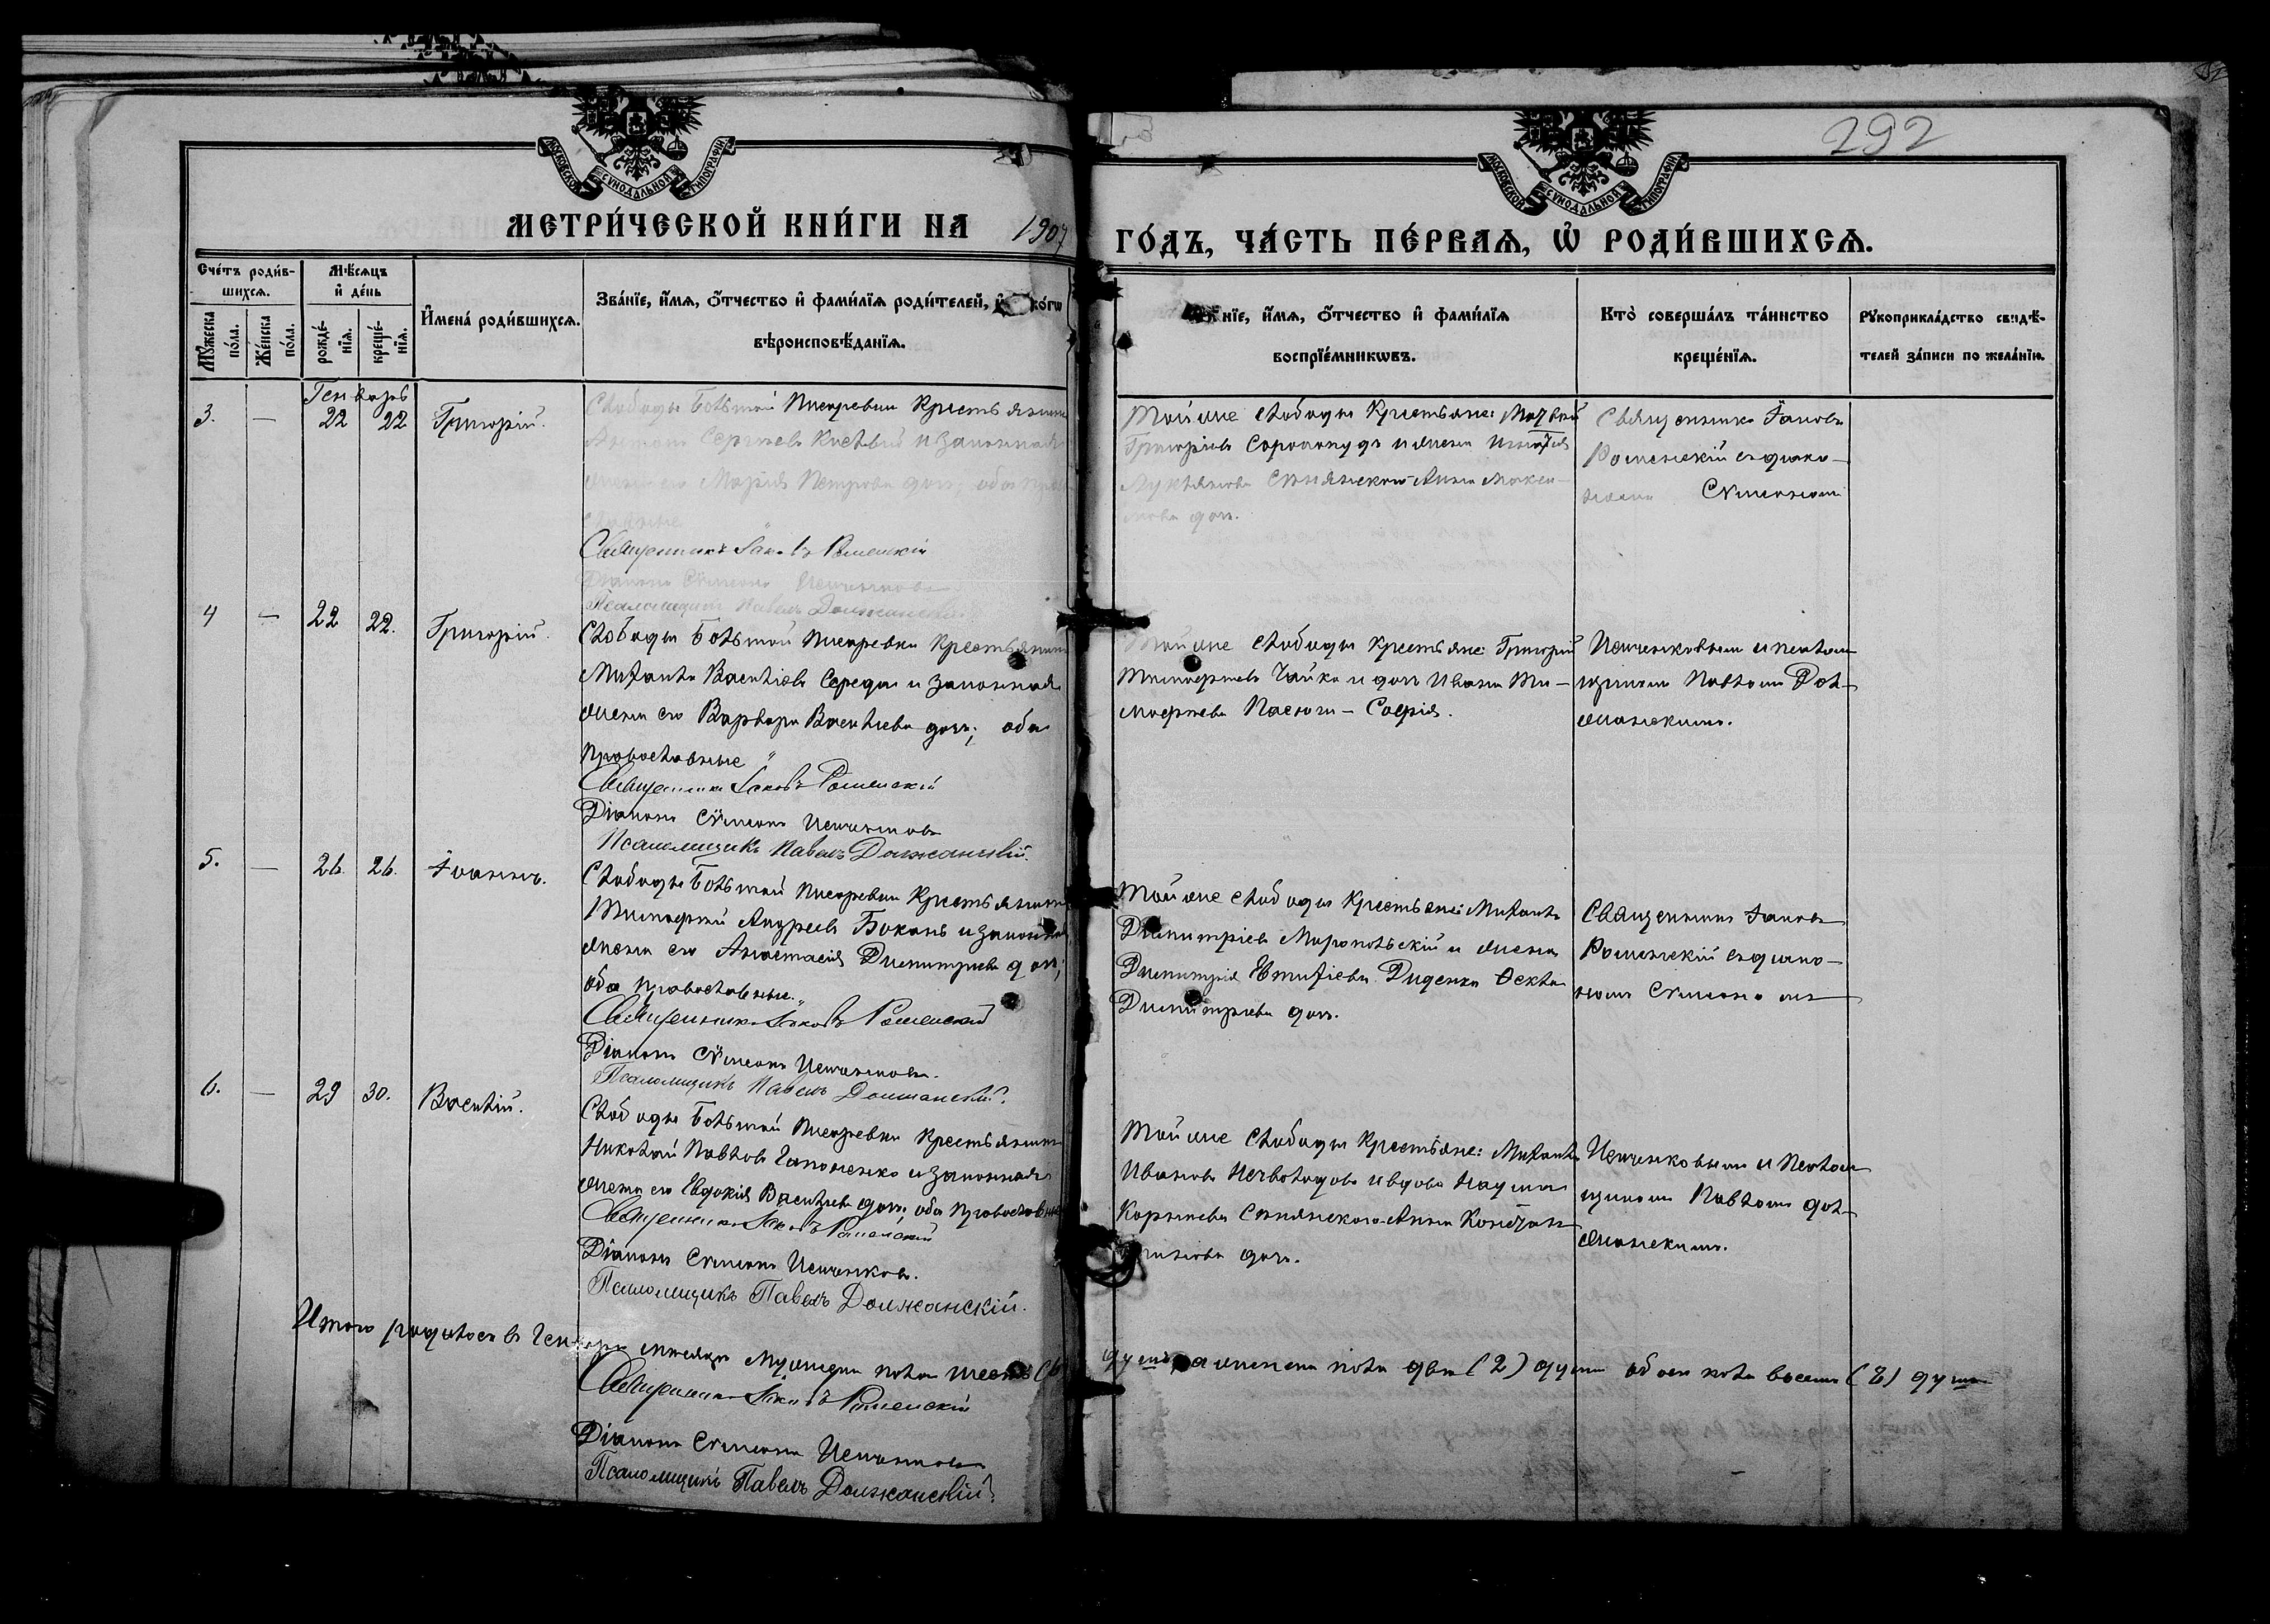 292
МОСКОВСКОЙ СѴНОДАЛЬНОЙ ТИПОГРАФІИ
МОСКОВСКОЙ СѴНОДАЛЬНОЙ ТИПОГРАФІИ
МЕТРИ́ЧЕСКОЙ КНИ́ГИ НА 1907
ГО́ДЪ, ЧА́СТЬ ПЕ́РВАѦ, Ѽ РОДИ́ВШИХСѦ.
Сче́тъ роди́в-
шихсѧ.
Мѣ́сѧцъ
и҆ де́нь
Мꙋ́жеска по́ла.
Же́нска по́ла.
рожде́-нїѧ.
креще́-нїѧ.
И҆мена̀ роди́вшихсѧ.
Зва́нїе, и҆́мѧ, ѻ҆́тчество и҆ фами́лїѧ роди́телей, и҆ ко́гѡ
вѣроисповѣ́данїѧ.
нїе, и҆́мѧ, ѻ҆́тчество и҆ фами́лїѧ
воспрїе́мникѡвъ.
Кто̀ соверша́лъ та́инство
креще́нїѧ.
Рꙋкоприкла́дство свидѣ́-
телей за́писи по жела́нїю.
Генварь
3. — 22 22 Григорій.
Слободы Большой Писаревки Крестьянинъ
Сергѣевъ и законная
жена его Марія Петрова доч; оба
Священникъ Іаковъ Роменскій
Діаконъ Сѵмеонъ
Псаломщикъ Павелъ Должанскій
Той же слободы Крестьяне:
Григоріевъ и жена
Анна
доч.
Священникъ Іаковъ
Роменскій съ діако-
номъ Сѵмеономъ
4 — 22 22. Григорій.
Слободы Большой Писаревки Крестьянинъ
Михаилъ Василіевъ Середа и законная
жена его Варвара Василіева доч; оба
православные
Священникъ Іаковъ Роменскій
Діаконъ Сѵмеонъ
Псаломщикъ Павелъ Должанскій.
Той же слободы Крестьяне: Григорій
Тимофеевъ Чайка и доч Ивана Ти-
мофеева — Софія.
и псалом-
щикомъ Павломъ Дол-
жанскимъ.
5. — 26. 26. Іоаннъ.
Слободы Большой Писаревки Крестьянинъ
Тимофей Андреевъ Боканъ и законная
жена его Анастасія Димитріева доч;
оба православные.
Священникъ Іаковъ Роменскій
Діаконъ Сѵмеонъ
Псаломщикъ Павелъ Должанскій.
Той же слободы Крестьяне: Михаилъ
Димитріевъ и жена
Димитрія Евтихіева Диденка Ѳекла
Димитріева доч.
Священникъ Іаковъ
Роменскій съ діако-
номъ Сѵмеономъ
6. — 29 30. Василій.
Слободы Большой Писаревки Крестьянинъ
Николай Павловъ Гапоненко и законная
жена его Евдокія Василіева доч; оба православные
Священникъ Іаковъ Роменскій
Діаконъ Сѵмеонъ
Псаломщикъ Павелъ Должанскій.
Той же слободы Крестьяне: Михаилъ
Ивановъ и вдова Наума
Анна
доч.
и псалом-
щикомъ Павломъ Дол-
жанскимъ.
Итого родилось въ Генварѣ мѣсяцѣ мужеска пола шесть (6)
душъ, а женска пола двѣ (2) души обоего пола восемь (8) душъ
Священникъ Іаковъ Роменскій
Діаконъ Сѵмеонъ
Псаломщикъ Павелъ Должанскій.